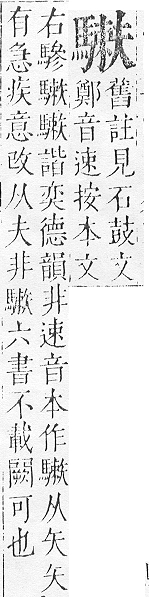 舊註見石鼓文
鄭音速按本文
右驂諧奕德韻非速音本作从矢矢
有急疾意改从夫非六書不載闕可也